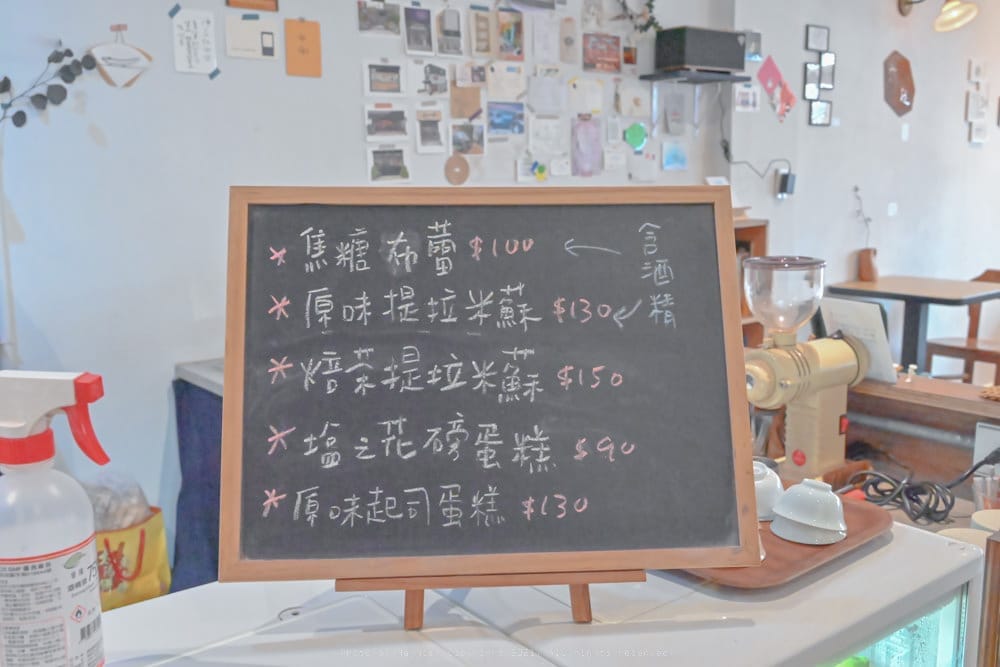 * 焦糖布蕾 $100 ← 含酒精
* 原味提拉米蘇 $130 ↙
* 焙茶提拉米蘇 $150
* 塩之花磅蛋糕 $90
* 原味起司蛋糕 $130
75